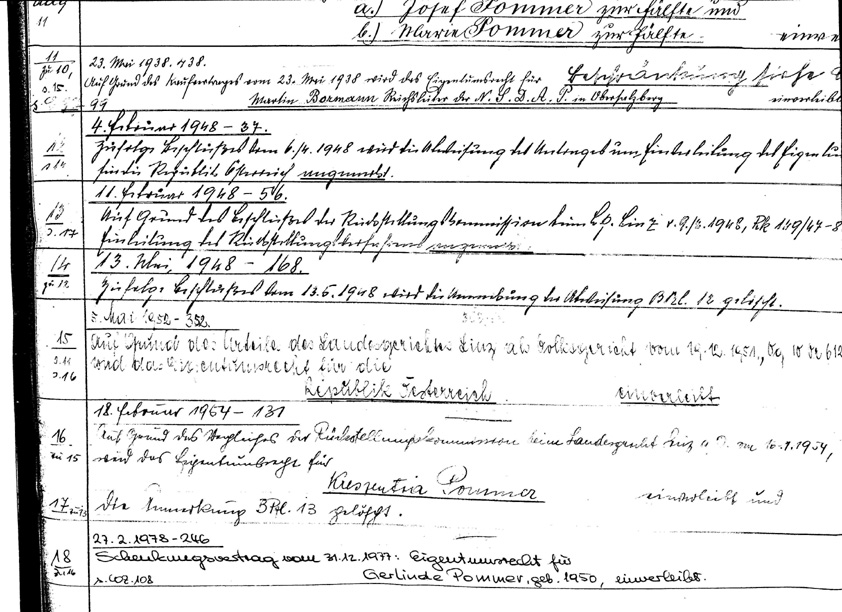 11
a.) Josef Pommer zur Hälfte und
b.) Marie Pommer zur Hälfte
11
zu 10,
23. Mai 1938. 438.
Auf Grund des Kaufvertrages vom 23. Mai 1938 wird das Eigentumsrecht für Beschränkung siehe
99 Martin Bormann Reichsleiter der N.S.D.A.P. in Obersalzberg einverleibt
4. Februar 1948 - 37.
12 Zufolge Beschlusses vom 1948 wird die Abweisung des Antrages um Einverleibung des
für die Republik Österreich angemerkt.
11. Februar 1948 - 56.
13 Auf Grund des Beschlusses der Rückstellungskommission beim Lg. Linz v. 1948, Rk 149/47-8
Einleitung des Rückstellungsverfahrens
14 13. Mai, 1948 - 168.
zu 12. Zufolge Beschlusses vom 13.5.1948 wird die Anmerkung der Abweisung 12 gelöscht.
5. Mai 1952 - 352.
15 Auf Grund des Urteils des Landesgerichtes Linz als Volksgericht vom 19.12.1951,
wird das Eigentumsrecht für die
Republik Oesterreich einverleibt
18. Februar 1954 - 131
16. Auf Grund des Vergleiches der Rückstellungskommission beim Landesgericht Linz 1954,
zu 15 wird das Eigentumsrecht für
Kreszentia Pommer einverleibt und
17 die Anmerkung 13 gelöscht.
27.2.1978-246
18 Schenkungsvertrag vom 31.12.1977: Eigentumsrecht für
Gerlinde Pommer, geb. 1950, einverleibt.